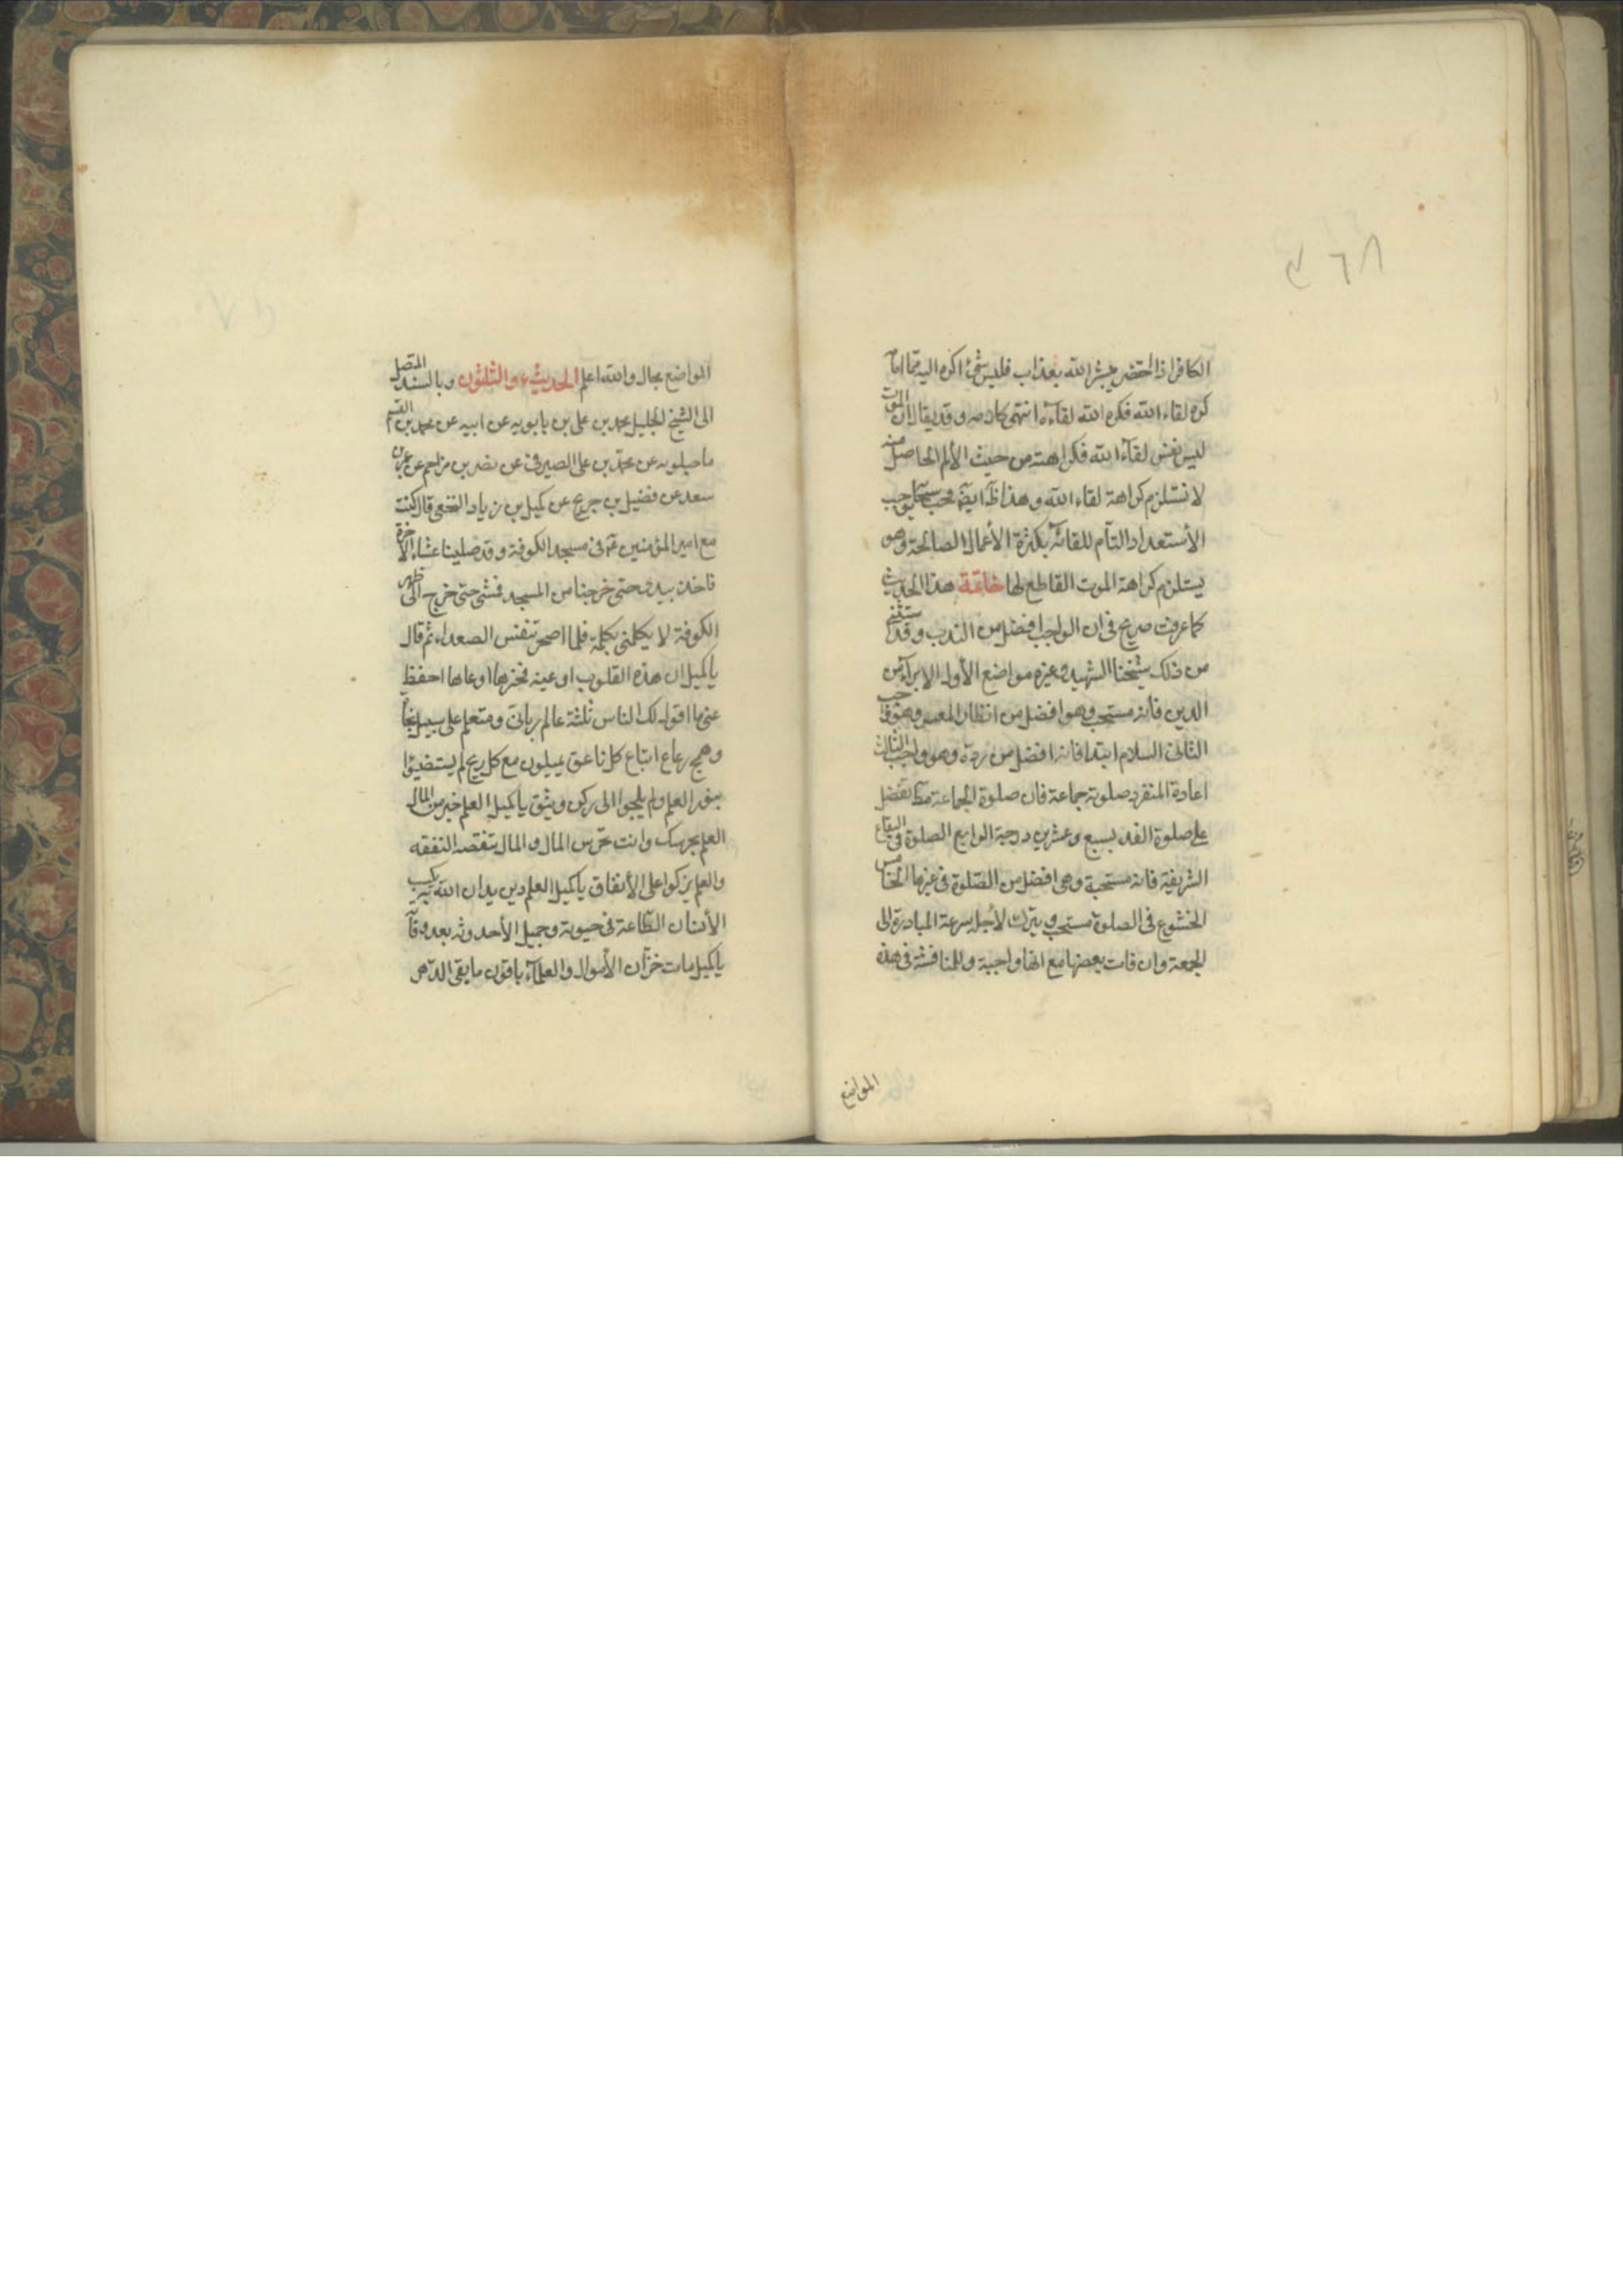 الكافر اذا احتضر يبشر الله بعذاب فليس شئ اكره اليه مما امامه
كره لقاء الله فكره الله لقاءه انتهى كلامه وقد يقال ان الموت
ليس نفس لقاء الله فكراهته من حيث الألم الحاصل منه
لا تستلزم كراهة لقاء الله وهذا ظ ايضا فحب سبحانه يوجب
الأستعداد التام للقائه بكثرة الأعمال الصالحة وهو
يستلزم كراهة الموت القاطع لها خاتمة هذا الحديث
كما عرفت صريح فى ان الواجب افضل من الندب وقد ستثنى
من ذلك شيخنا الشهيد وغيره مواضع الأول الابراء من
الدين فانه مستحب وهو افضل من انظار المعسر وهو واجب
الثانى السلام ابتداء فانه افضل من رده وهو واجب الثالث
اعادة المنفرد صلوته جماعة فان صلوة الجماعة مط تفضل
على صلوة الفذ بسبع وعشرين درجة الرابع الصلوة فى البقاع
الشريفة فانه مستحبة وهى افضل من الصلوة فى غيرها الخامس
الخشوع فى الصلوة مستحب ويترك لأجله سرعة المبادرة الى
الجمعة وان فات بعضها مع انها واجبة وللمناقشة فى هذه
المواضع
المواضع مجال والله اعلم الحديث ء والثلثون وبالسند المتصل
الى الشيخ الجليل محمد بن على بن بابويه عن ابيه عن محمد بن القسم
ماجيلويه عن محمد بن على الصيرفى عن نصر بن مزاحم عن عمر بن
سعد عن فضيل بن جريج عن كميل بن زياد النخعى قال كنت
مع امير المؤمنين ع فى مسجد الكوفة وقد صلينا عشاء الآخرة
فاخذ بيدى حتى خرجنا من المسجد فمشى حتى خرج الى ظهر
الكوفة لا يكلمنى بكلمة فلما اصحر تنفس الصعداء ثم قال
يا كميل ان هذه القلوب اوعية فخيرها اوعاها احفظ
عنى ما اقول لك الناس ثلثة عالم ربانى ومتعلم على سبيل نجاة
وهمج رعاع اتباع كل ناعق يميلون مع كل ريح لم يستضيؤا
بنور العلم ولم يلجؤا الى ركن وثيق يا كميل العلم خير من المال
العلم يحرسك وانت تحرس المال والمال تنقصه النفقه
والعلم يزكوا على الأنفاق يا كميل العلم دين يدان الله به يكسب
الأنسان الطاعة فى حيوته وجميل الأحدوثه بعد وفاته
يا كميل مات خزان الأموال والعلماء باقون ما بقى الدهر